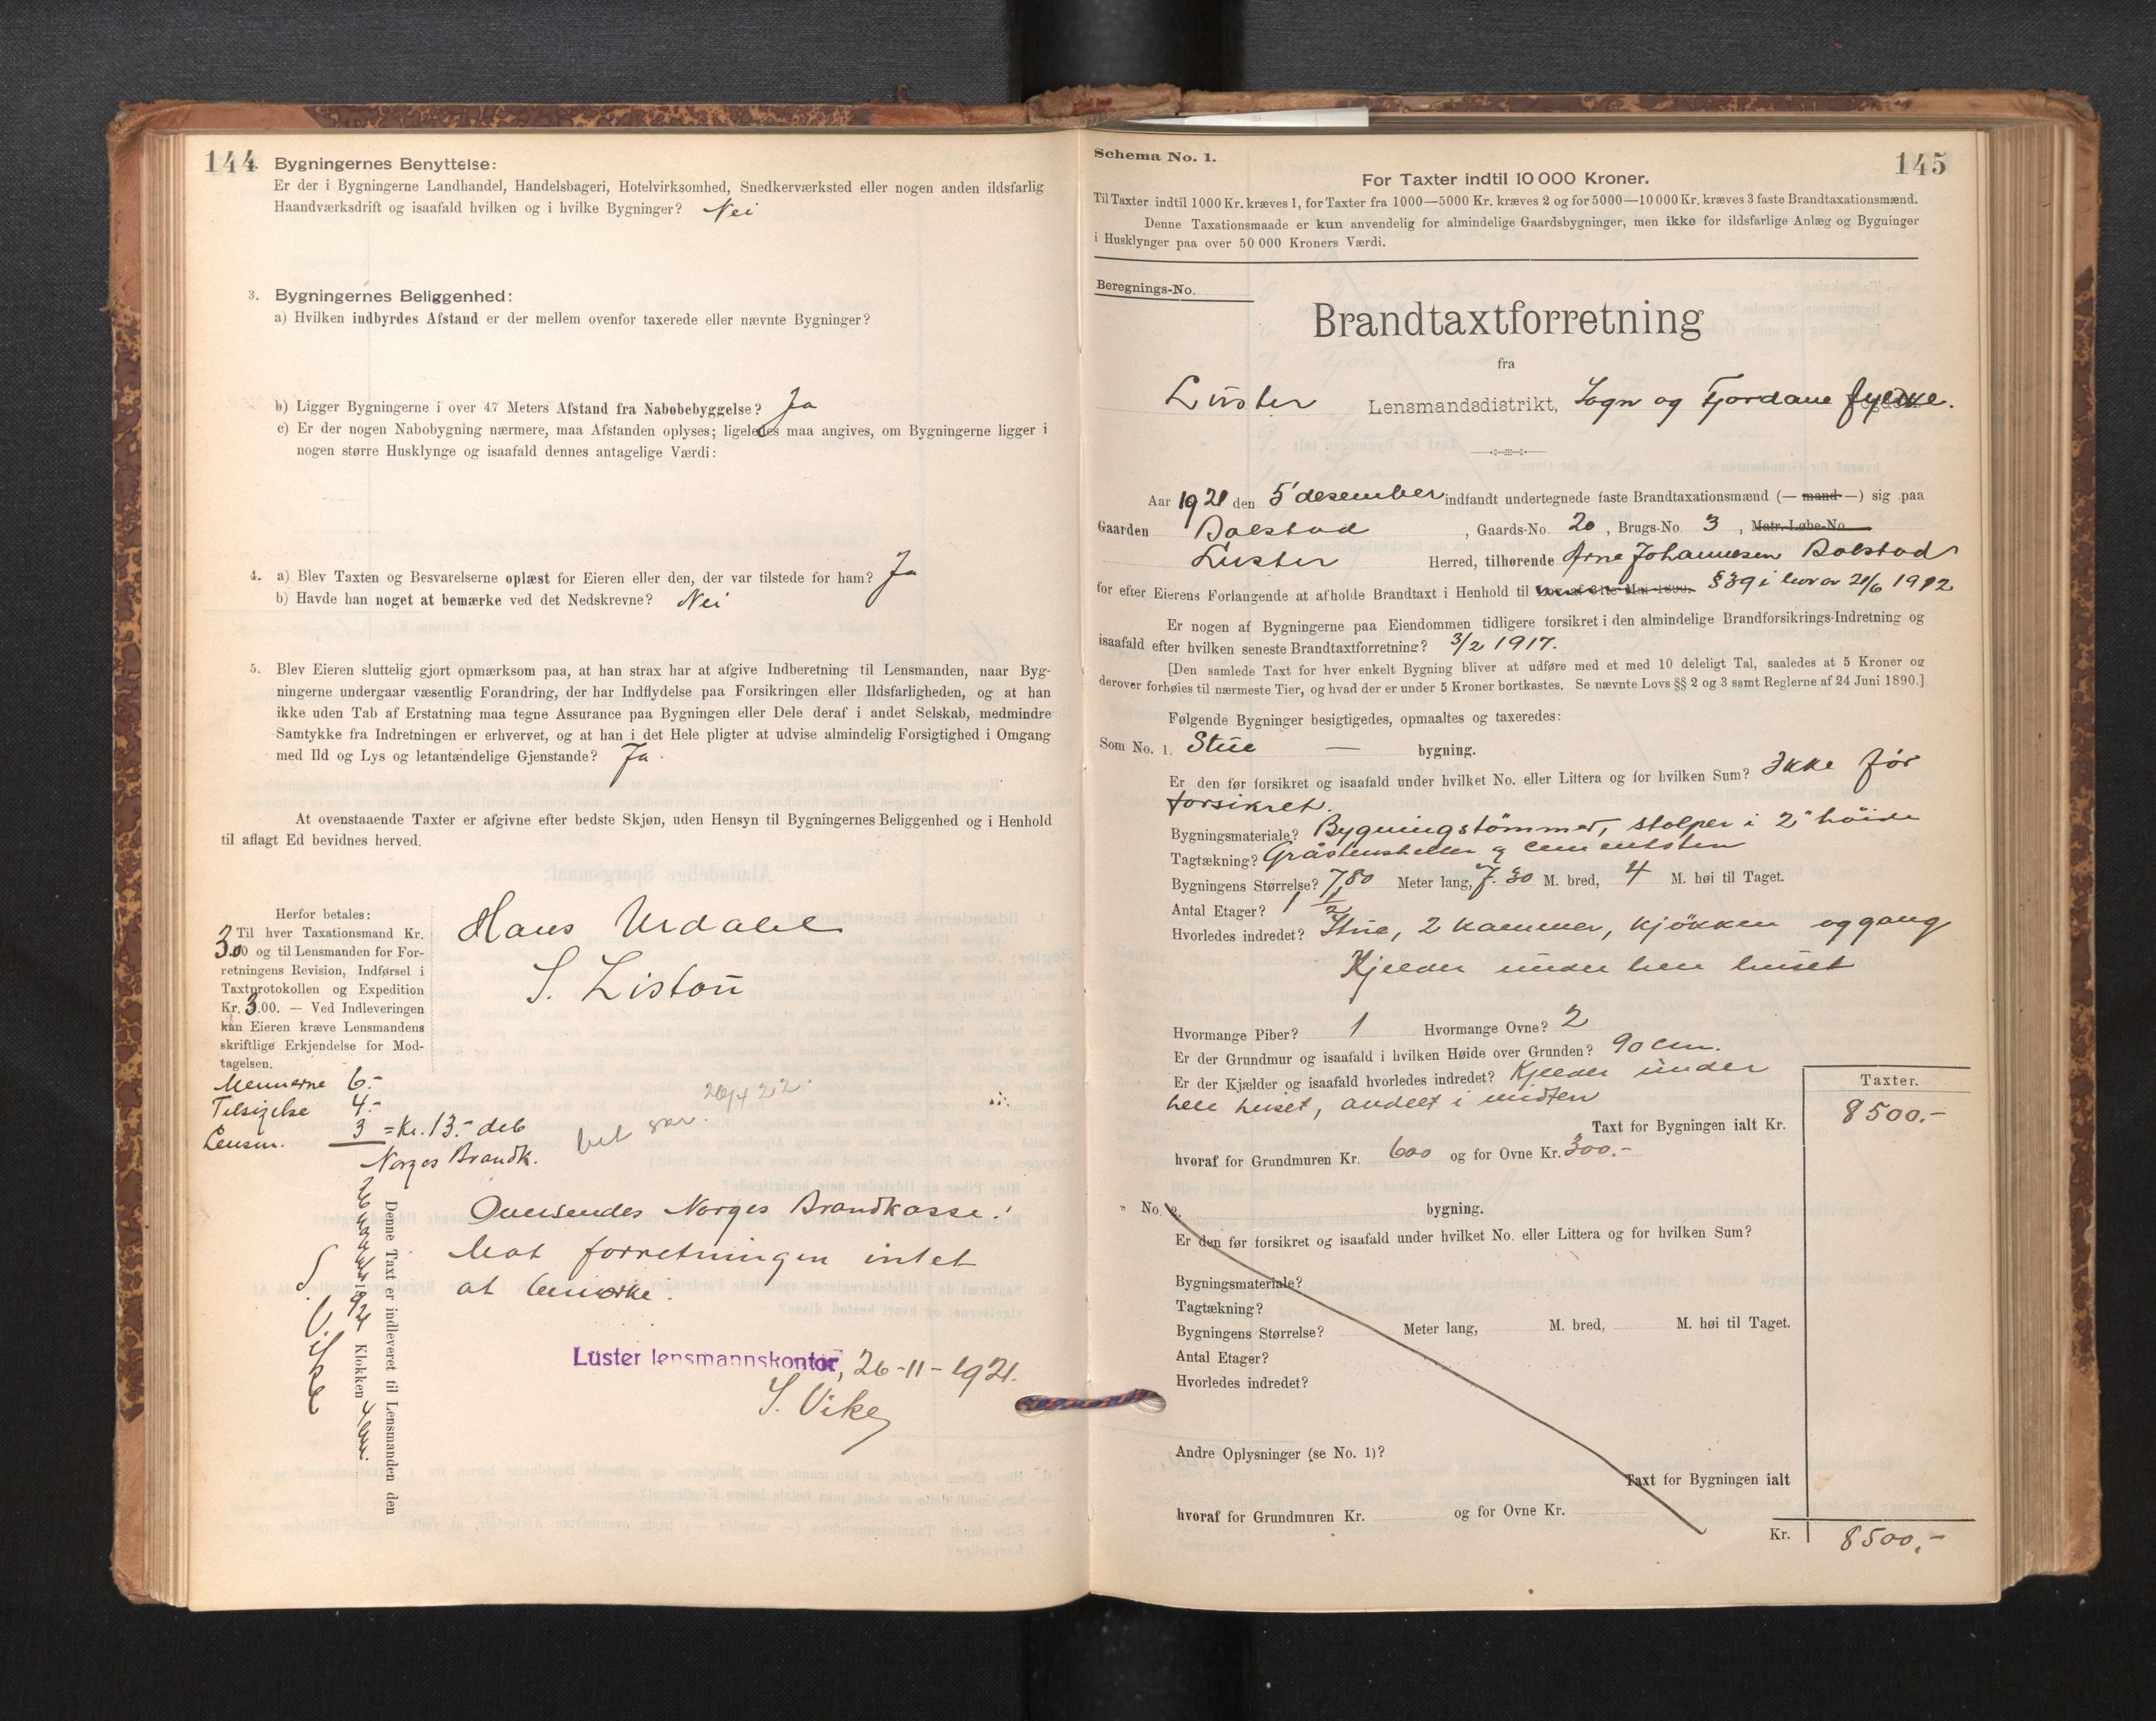 144
Bygningernes Benyttelse:
Er der i Bygningerne Landhandel, Handelsbageri, Hotelvirksomhed, Snedkerværksted eller nogen anden ildsfarlig
Haandværksdrift og isaafald hvilken og i hvilke Bygninger? Nei
3. Bygningernes Beliggenhed:
a) Hvilken indbyrdes Afstand er der mellem ovenfor taxerede eller nævnte Bygninger?
b) Ligger Bygningerne i over 47 Meters Afstand fra Nabobebyggelse? Ja
c) Er der nogen Nabobygning nærmere, maa Afstanden oplyses; ligeledes maa angives, om Bygningerne ligger i
nogen større Husklynge og isaafald dennes antagelige Værdi:
4. a) Blev Taxten og Besvarelserne oplæst for Eieren eller den, der var tilstede for ham? Ja
b) Havde han noget at bemærke ved det Nedskrevne? Nei
5. Blev Eieren sluttelig gjort opmærksom paa, at han strax har at afgive Indberetning til Lensmanden, naar Byg-
ningerne undergaar væsentlig Forandring, der har Indflydelse paa Forsikringen eller Ildsfarligheden, og at han
ikke uden Tab af Erstatning maa tegne Assurance paa Bygningen eller Dele deraf i andet Selskab, medmindre
Samtykke fra Indretningen er erhvervet, og at han i det Hele pligter at udvise almindelig Forsigtighed i Omgang
med Ild og Lys og letantændelige Gjenstande? Ja.
At ovenstaaende Taxter er afgivne efter bedste Skjøn, uden Hensyn til Bygningernes Beliggenhed og i Henhold
til aflagt Ed bevidnes herved.
Herfor betales:
Til hver Taxationsmand Kr.
3.00 og til Lensmanden for For-
retningens Revision, Indførsel i
Taxtprotokollen og Expedition
Kr. 3.00. — Ved Indleveringen
kan Eieren kræve Lensmandens
skriftlige Erkjendelse for Mod-
tagelsen.
Hans Urdahl
S. Liston
Mennerne 6.-
Tilsigelse 4.-
Lensm. 3 = Kr. 13.- deb
Norges Brandk.
26/4 22.
Denne Taxt er indleveret til Lensmanden den
Klokken
S. Vike
Oversendes Norges Brandkasse.
Mot forretningen intet
at bemerke.
Luster lensmannskontor, 26-11-1921.
S. Vike
Schema No. 1.
145
For Taxter indtil 10 000 Kroner.
Til Taxter indtil 1000 Kr. kræves 1, for Taxter fra 1000—5000 Kr. kræves 2 og for 5000—10 000 Kr. kræves 3 faste Brandtaxationsmænd.
Denne Taxationsmaade er kun anvendelig for almindelige Gaardsbygninger, men ikke for ildsfarlige Anlæg og Bygninger
i Husklynger paa over 50 000 Kroners Værdi.
Beregnings-No.
Brandtaxtforretning
fra
Luster Lensmandsdistrikt, Sogn og Fjordane fylke.
Aar 1921 den 5 desember indfandt undertegnede faste Brandtaxationsmænd (— mand —) sig paa
Gaarden Bolstad, Gaards-No. 20, Brugs-No. 3, Matr.-Løbe-No.
Luster Herred, tilhørende Arne Johannesen Bolstad
for efter Eierens Forlangende at afholde Brandtaxt i Henhold til § 39 i lov av 21/6 1912
Er nogen af Bygningerne paa Eiendommen tidligere forsikret i den almindelige Brandforsikrings-Indretning og
isaafald efter hvilken seneste Brandtaxtforretning? 3/2 1917.
[Den samlede Taxt for hver enkelt Bygning bliver at udføre med et med 10 deleligt Tal, saaledes at 5 Kroner og
derover forhøies til nærmeste Tier, og hvad der er under 5 Kroner bortkastes. Se nævnte Lovs §§ 2 og 3 samt Reglerne af 24 Juni 1890.]
Følgende Bygninger besigtigedes, opmaaltes og taxeredes:
Som No. 1. Stue — bygning.
Er den før forsikret og isaafald under hvilket No. eller Littera og for hvilken Sum? Ikke før
forsikret.
Bygningsmateriale? Bygningstömmer, stolper i 2" höide
Tagtækning? Gråstensheller og cementsten
Bygningens Størrelse? 7,80 Meter lang, 7.30 M. bred, 4 M. høi til Taget.
Antal Etager? 1 1/2
Hvorledes indredet? Stue, 2 kammer, kjökken og gang
Kjelder under hele huset
Hvormange Piber? 1 Hvormange Ovne? 2
Er der Grundmur og isaafald i hvilken Høide over Grunden? 90 cm.
Er der Kjælder og isaafald hvorledes indredet? Kjelder under
hele huset, avdelt i midten
Taxter.
Taxt for Bygningen ialt Kr. 8500.-
hvoraf for Grundmuren Kr. 600 og for Ovne Kr. 300.-
" No. 2. bygning.
Er den før forsikret og isaafald under hvilket No. eller Littera og for hvilken Sum?
Bygningsmateriale?
Tagtækning?
Bygningens Størrelse? Meter lang, M. bred, M. høi til Taget.
Antal Etager?
Hvorledes indredet?
Andre Oplysninger (se No. 1)?
Taxt for Bygningen ialt
hvoraf for Grundmuren Kr. og for Ovne Kr.
Kr. 8500.-